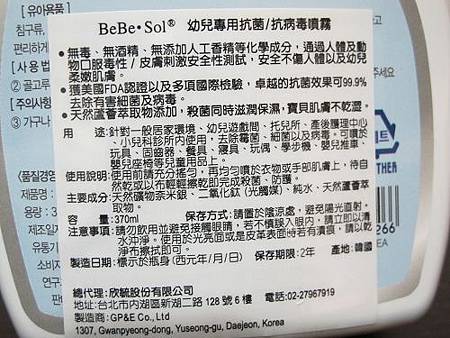 BeBe·Sol® 幼兒專用抗菌/抗病毒噴霧
• 無毒、無酒精、無添加人工香精等化學成分，通過人體及動
物口服毒性/皮膚刺激安全性測試，安全不傷人體以及幼兒
柔嫩肌膚。
• 獲美國FDA認證以及多項國際檢驗，卓越的抗菌效果可99.9%
去除有害細菌及病毒。
• 天然蘆薈萃取物添加，殺菌同時滋潤保濕，寶貝肌膚不乾澀。
用 途：針對一般居家環境、幼兒遊戲間、托兒所、產後護理中心
、小兒科診所內使用，去除霉菌、細菌以及病毒。可噴於
玩具、固齒器、餐具、寢具、玩偶、學步機、嬰兒推車、
嬰兒座椅等兒童用品上。
使用說明：使用前請先搖勻，再均勻噴於衣物或手部肌膚上，待自
然乾或以布輕輕擦乾即完成殺菌、防護。
主要成分：天然礦物奈米銀、二氧化鈦（光觸媒）、純水、天然蘆薈萃
取物。
容 量：370ml 保存方式：請置於陰涼處，避免陽光直射。
注意事項：請勿飲用並避免接觸眼睛，若不慎鎵入眼內，請立即以清
水沖淨。使用於光亮面或是皮革表面時若有漬痕，請以乾
淨布擦拭即可。
製造日期：標示於瓶身（西元年/月/日） 保存期限：2年 產地：韓國
總代理：欣毓股份有限公司
地址：台北市內湖區新湖二路128號6樓 電話:02-27967919
製造商：GP&E Co., Ltd
1307, Gwanpyeong-dong, Yuseong-gu, Daejeon, Korea
유아용품
침구류,
편리하게
[사용 방법
② 골고루
[주의사항
③ 가구나
(품질경영
제품명 :
용량 : 3
제조일자
유통기
소비자
제조원
THER
266
EA